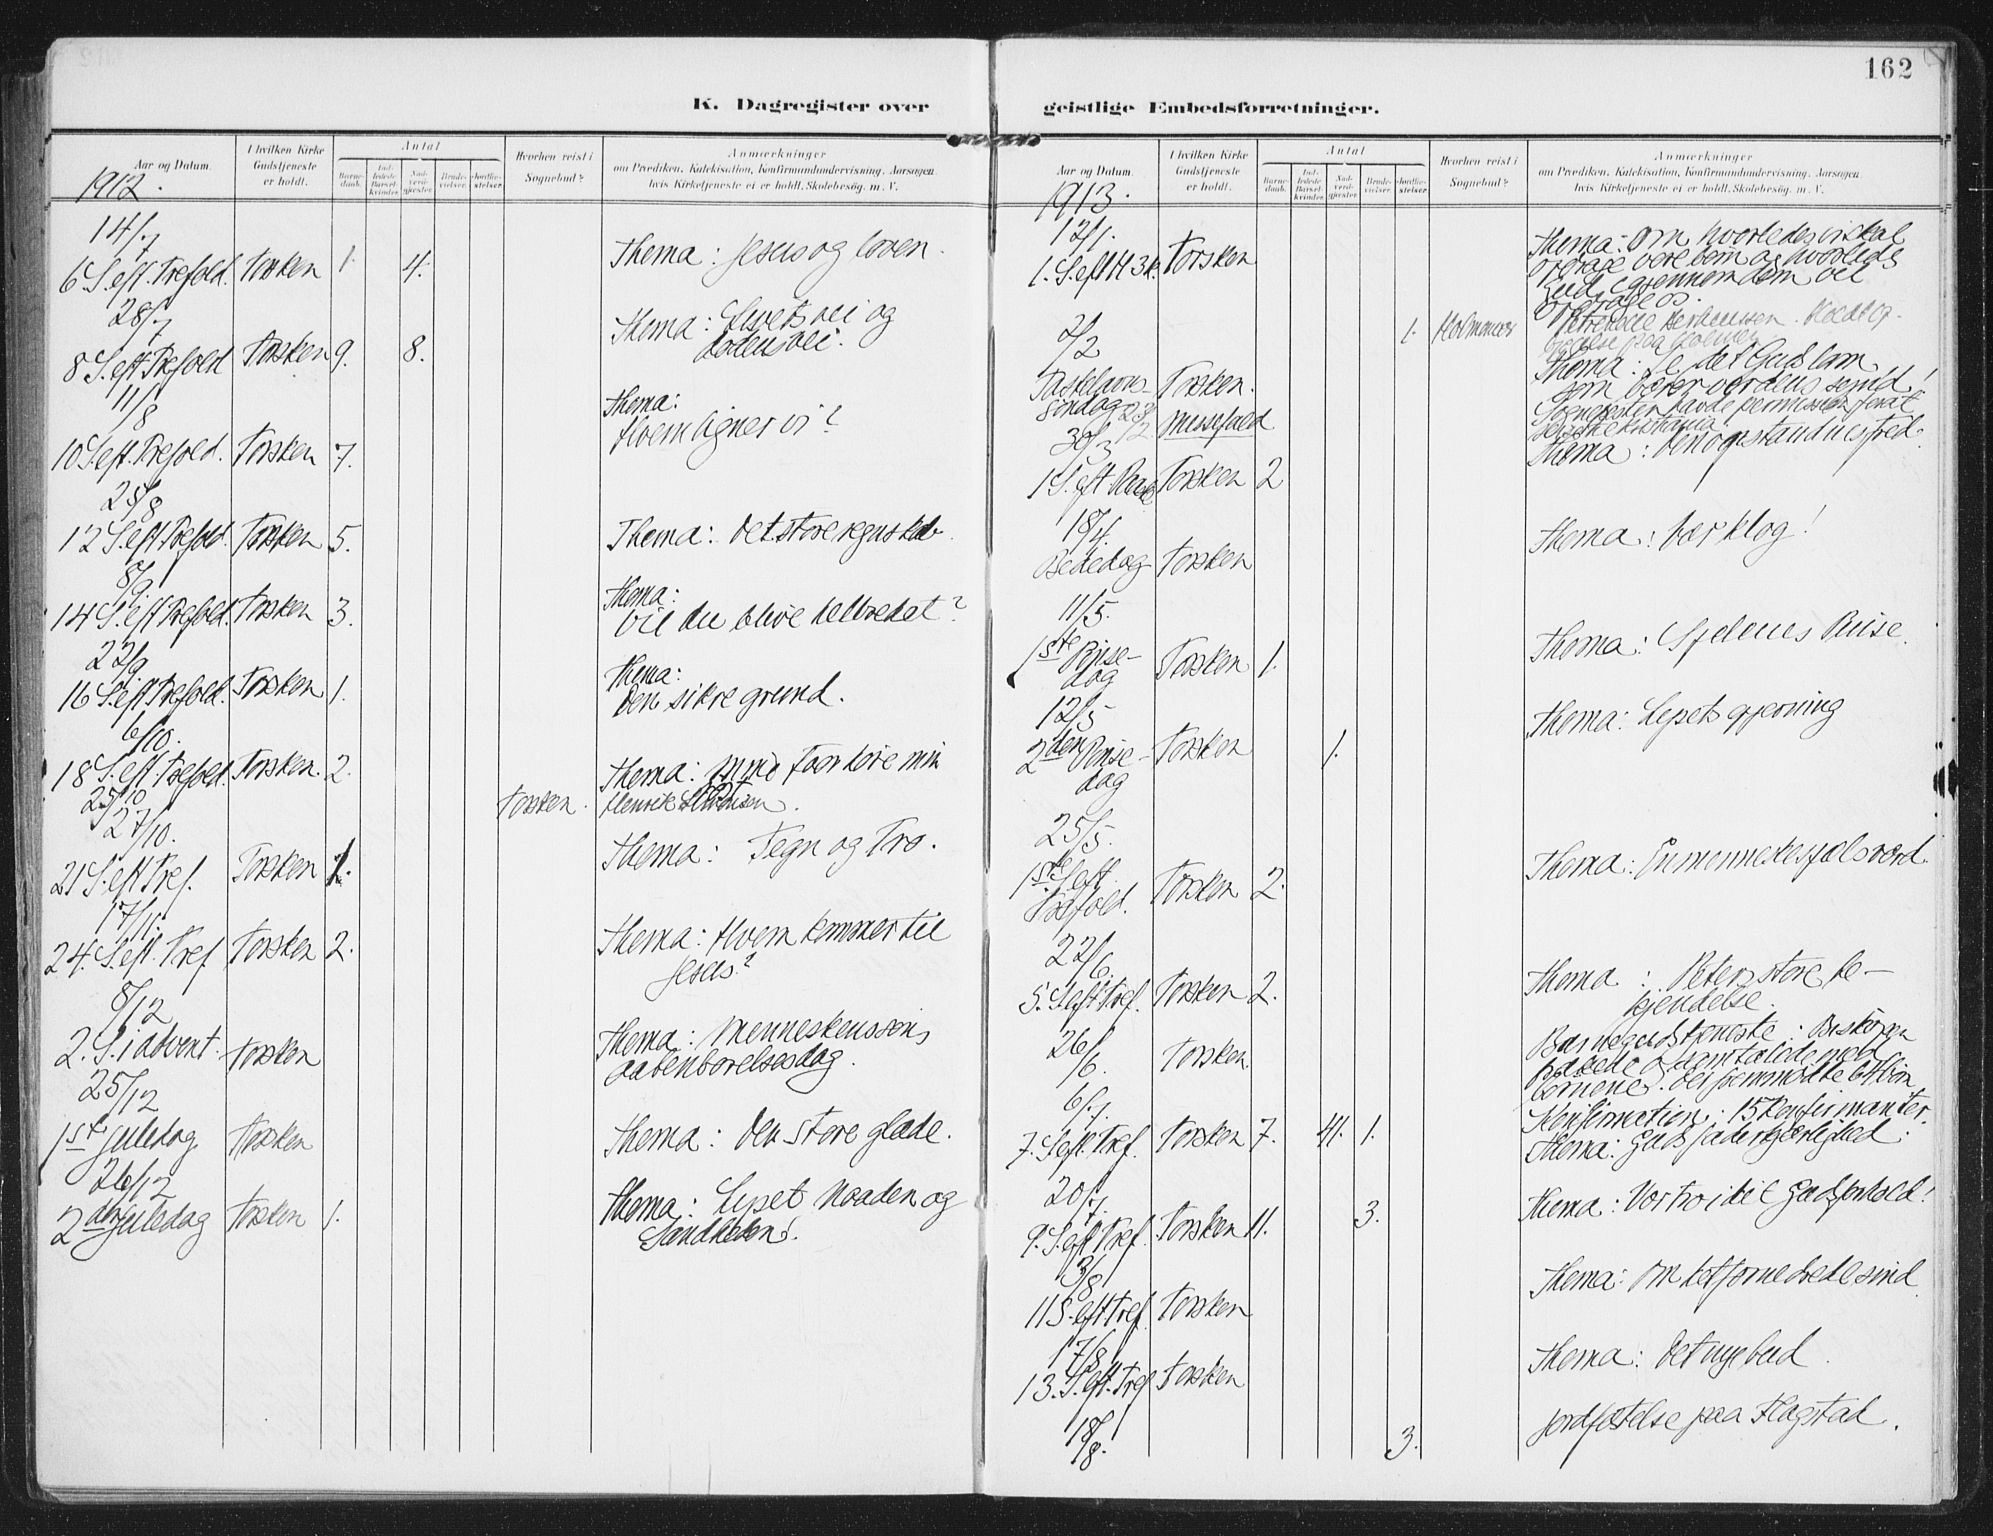 162
K. Dagregister over
geistlige Embedsforretninger.
Aar og Datum.
I hvilken Kirke
Gudstjeneste
er holdt.
Antal
Barne-
daab.
Ind-
ledede
Barsel-
kvinder.
Nad-
verd-
gjester.
Brude-
vielser.
Jordfæ-
stelser.
Hvorhen reist i
Sognebud?
Anmærkninger
om Prædiken, Katekisation, Konfirmandundervisning, Aarsagen
hvis Kirketjeneste ei er holdt, Skolebesøg. m. V.
1912.
14/7
6 S. eft. Trefold. Torsken 1. 4. Thema: Jesus og loven.
28/7
8 S. eft Trefold Torsken 9. 8. Thema: Livets vei og
dødens vei.
11/8
10 S. eft. Trefold. Torsken 7. Thema:
Hvem ligner vi?
25/8
12 S. eft Trefold. Torsken 5. Thema: Det store regnskab.
8/9
14 S. eft Trefold. Torsken 3. Thema:
Vil du blive helbredet?
22/9
16 S. eft Trefold. Torsken 1. Thema:
Den sikre grund.
6/10.
18 S. eft. Trefold. Torsken. 2. Thema:
25/10 Torsken. Henrik
27/10.
21 S. eft Tref. Torsken 1. Thema: Tegn og Tro.
17/11.
24. S. eft. Tref Torsken 2. Thema: Hvem kommer til
Jesus?
8/12
2. S. i advent. Torsken Thema: Menneskenssøns
aabenbarelsesdag.
25/12
1ste Juledag Torsken Thema: Den store glæde.
26/12
2den Juledag Torsken 1. Thema: Lyset Naaden og
Sandheden!
Aar og Datum.
I hvilken Kirke
Gudstjeneste
er holdt.
Antal
Barne-
daab.
Ind-
ledede
Barsel-
kvinder
Nad-
verd-
gjester
Brude-
vielser.
Jordfæ-
stelser
Hvorhen reist i
Sognebud?
Anmærkninger
om Prædiken, Katekisation, Konfirmandundervisning, Aarsagen
hvis Kirketjeneste ei er holdt, Skolebesøg. m. V.
1913.
12/1.
1. S. eft H 3 k. Torsken Thema: Om hvorledes vi skal
opdrage vore børn og hvorledes
Gud gjennem dem vil
opdrage os.
2/2 1.
Thema: Se det Guds lam
som bærer verdens synd!
Fastelavns-
søndag Torsken.
2/2 Messefald havde permission for at
30/3 Thema:
1 S. eft. Paask Torsken 2
18/4.
Bededag Torsken Thema: Vær klog!
11/5.
1ste Pinse-
dag Torsken 1. Thema: Sjelenes Pinse.
12/5
2den Pinse-
dag Torsken 1. Thema: Lysets gjerning
25/5.
1ste S. eft.
Trefold. Torsken 2. Thema: En menneskesjæls værd.
22/6.
5. S. eft Tref. Torsken 2. Thema: Peters store be-
kjendelse.
26/6. Torsken. Barnegudstjeneste: Biskoppen
og samtalede med
børnene.
6/7. Konfirmation: 15 konfirmanter.
7. S. eft. Tref. Torsken 7. 41. 1. Thema: Guds faderkjærlighed.
20/7.
9. S. eft Tref. Torsken 11. 3. Thema: Vor tro i det Gudsforhold!
3/8
11 S. eft Tref. Torsken Thema: Om det fornedrede sind
17/8
13. S. eft. Tref Torsken Thema: Det nye bud.
18/8. 3. Jordfæstelse paa Flagstad.